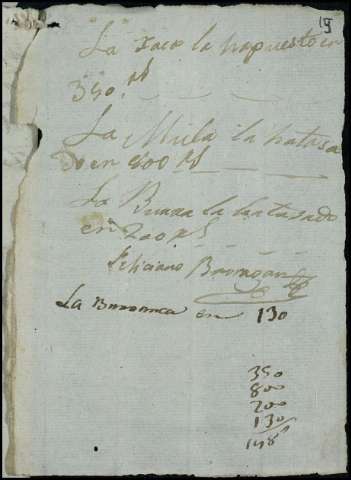 19
La Jaca la ha puesto en
350. rs
La Mula la ha tasa
do en 800 rs
La Burra la ha tasado
en 200 rs
Feliciano
La Burranca en 130
350
800
200
130
148